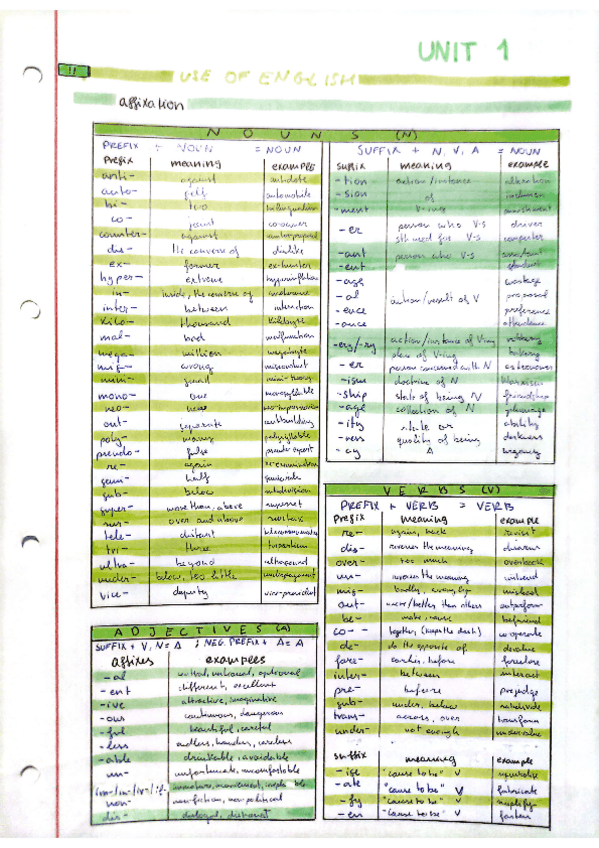 UNIT 1
11
USE OF ENGLISH
affixation
NOUNS (N)
PREFIX + NOUN = NOUN
prefix meaning example
anti- against antidote
auto- self automobile
bi- two
co- joint co-owner
counter- against
dis- the converse of dislike
ex- former ex-hunter
hyper- extreme hyperinflation
in- inside, the converse of
inter- between interaction
kilo- thousand kilobyte
mal- bad malfunction
mega- million megabyte
mis- wrong misconduct
mini- small
mono- one monosyllable
neo- new
out- separate outbuilding
poly- many polysyllable
pseudo- false pseudo-expert
re- again
semi- half semicircle
sub- below subdivision
super- more than, above superset
sur- over and above surtax
tele- distant
tri- three tripartism
ultra- beyond ultrasound
under- below, too little underpayment
vice- deputy vice-president
SUFFIX + N, V, A = NOUN
suffix meaning example
-tion action/instance
-sion of
-ment V-ing
-er person who V-s driver
sth used for V-s computer
-ant person who V-s assistant
-ent student
-age wastage
-al action/result of V proposal
-ence preference
-ance attendance
-ery/-ry action/instance of V-ing robbery
place of V-ing bakery
-er person concerned with N astronomer
-ism doctrine of N Marxism
-ship state of being N friendship
-age collection of N
-ity state or ability
-ness quality of being darkness
-cy A urgency
VERBS (V)
PREFIX + VERB = VERB
prefix meaning example
re- again, back revisit
dis- reverses the meaning
over- too much
un- reverses the meaning unbend
mis- badly, wrongly mislead
out- more/better than others outperform
be- make, cause befriend
co- together (keeps the dash) co-operate
de- do the opposite of devalue
fore- earlier, before foreclose
inter- between interact
pre- before prejudge
sub- under, below subdivide
trans- across, over transform
under- not enough undervalue
suffix meaning example
-ise "cause to be" V
-ate "cause to be" V fabricate
-fy "cause to be" V
-en "cause to be" V fasten
ADJECTIVES (A)
SUFFIX + V, N = A ; NEG. PREFIX + A = A
affixes examples
-al
-ent different, excellent
-ive attractive, imaginative
-ous continuous, dangerous
-ful beautiful, careful
-less endless, homeless, careless
-able drinkable, avoidable
un- unfortunate, uncomfortable
im-/in-/ir-/il-
non- non-fiction, non-political
dis- disloyal, dishonest